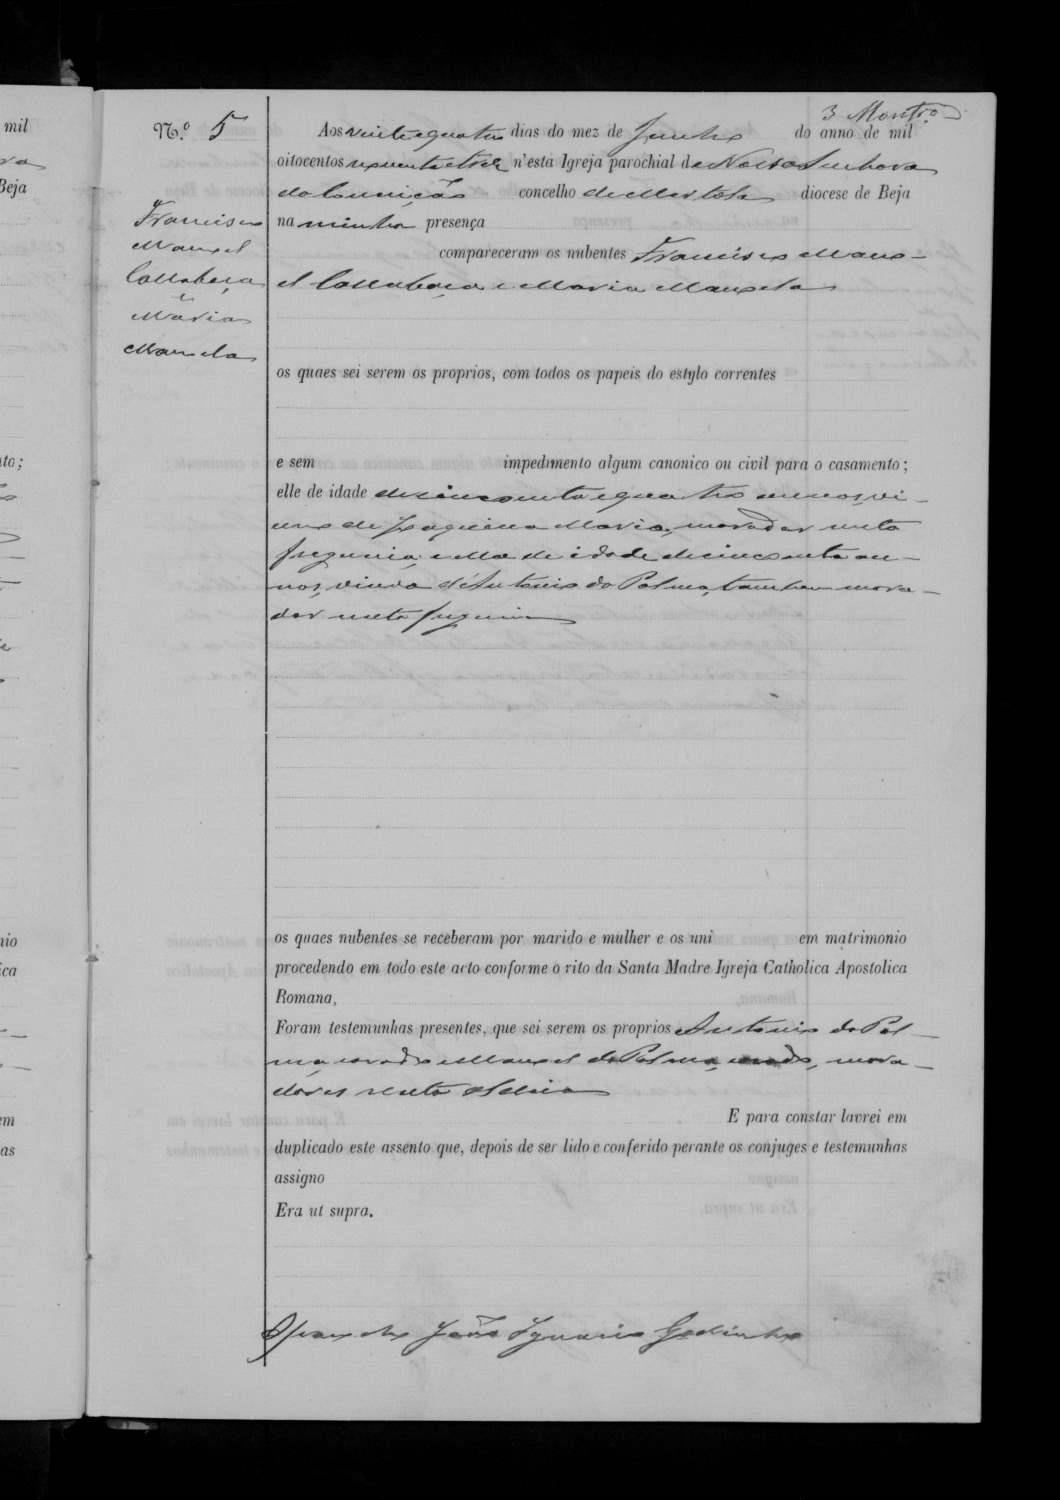 mil
Beja
nto;
nio
ica
em
as
3 Montr.o
N.o 5
Francisco
Manoel
Callabaça
e
Maria
Manoela
Aos vinte e quatro dias do mez de Junho do anno de mil
oitocentos noventa e tres n'esta Igreja parochial de Nossa Senhora
da Conceição concelho de Mertola diocese de Beja
na minha presença
compareceram os nubentes Francisco Mano-
el Callabaça e Maria Manoela
os quaes sei serem os proprios, com todos os papeis do estylo correntes
e sem impedimento algum canonico ou civil para o casamento;
elle de idade de cincoenta e quatro annos, vi-
uvo de Joaquina Maria, morador nesta
freguezia, e ella de idade de cincoenta an-
nos, viuva de Antonio da Palma, tambem mora-
dor nesta freguezia
os quaes nubentes se receberam por marido e mulher e os uni em matrimonio
procedendo em todo este acto conforme o rito da Santa Madre Igreja Catholica Apostolica
Romana,
Foram testemunhas presentes, que sei serem os proprios Antonio da Pal-
ma, Manoel da Palma, mora-
dores nesta Aldeia
E para constar lavrei em
duplicado este assento que, depois de ser lido e conferido perante os conjuges e testemunhas
assigno
Era ut supra.
João Ignacio Godinho